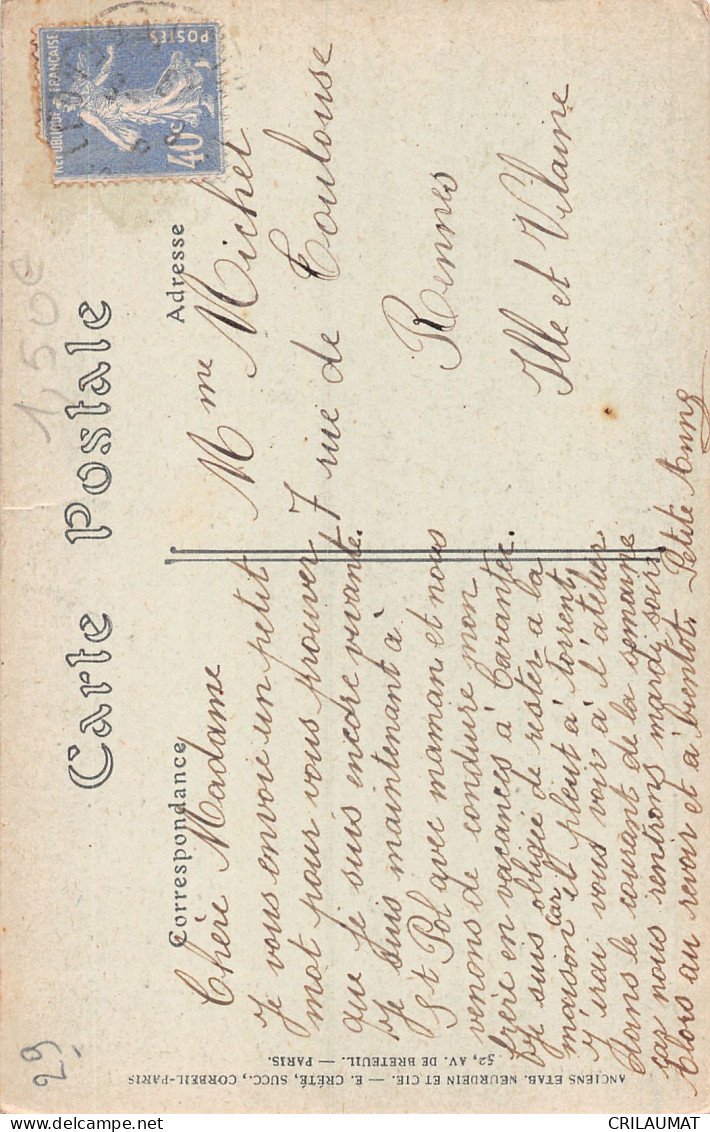 Carte Postale
Correspondance
Adresse
REPUBLIQUE FRANÇAISE
POSTES
40c
1,50e
29
Chère Madame
Je vous envoie un petit
mot pour vous prouver
que je suis encore vivante.
Je suis maintenant à
St Pol avec maman et nous
venons de conduire mon
frère en vacances à Carantec.
Je suis obligée de rester à la
maison car il pleut à torrent,
J'irai vous voir à l'atelier
dans le courant de la semaine
car nous rentrons mardi soir.
Alors au revoir et à bientôt. Petite Anny
Mme Michel
7 rue de Toulouse
Rennes
Ille et Vilaine
ANCIENS ETAB. NEURDEIN ET CIE. — E. CRÉTÉ, SUCC., CORBEIL-PARIS
52, AV. DE BRETEUIL. — PARIS.
CRILAUMAT